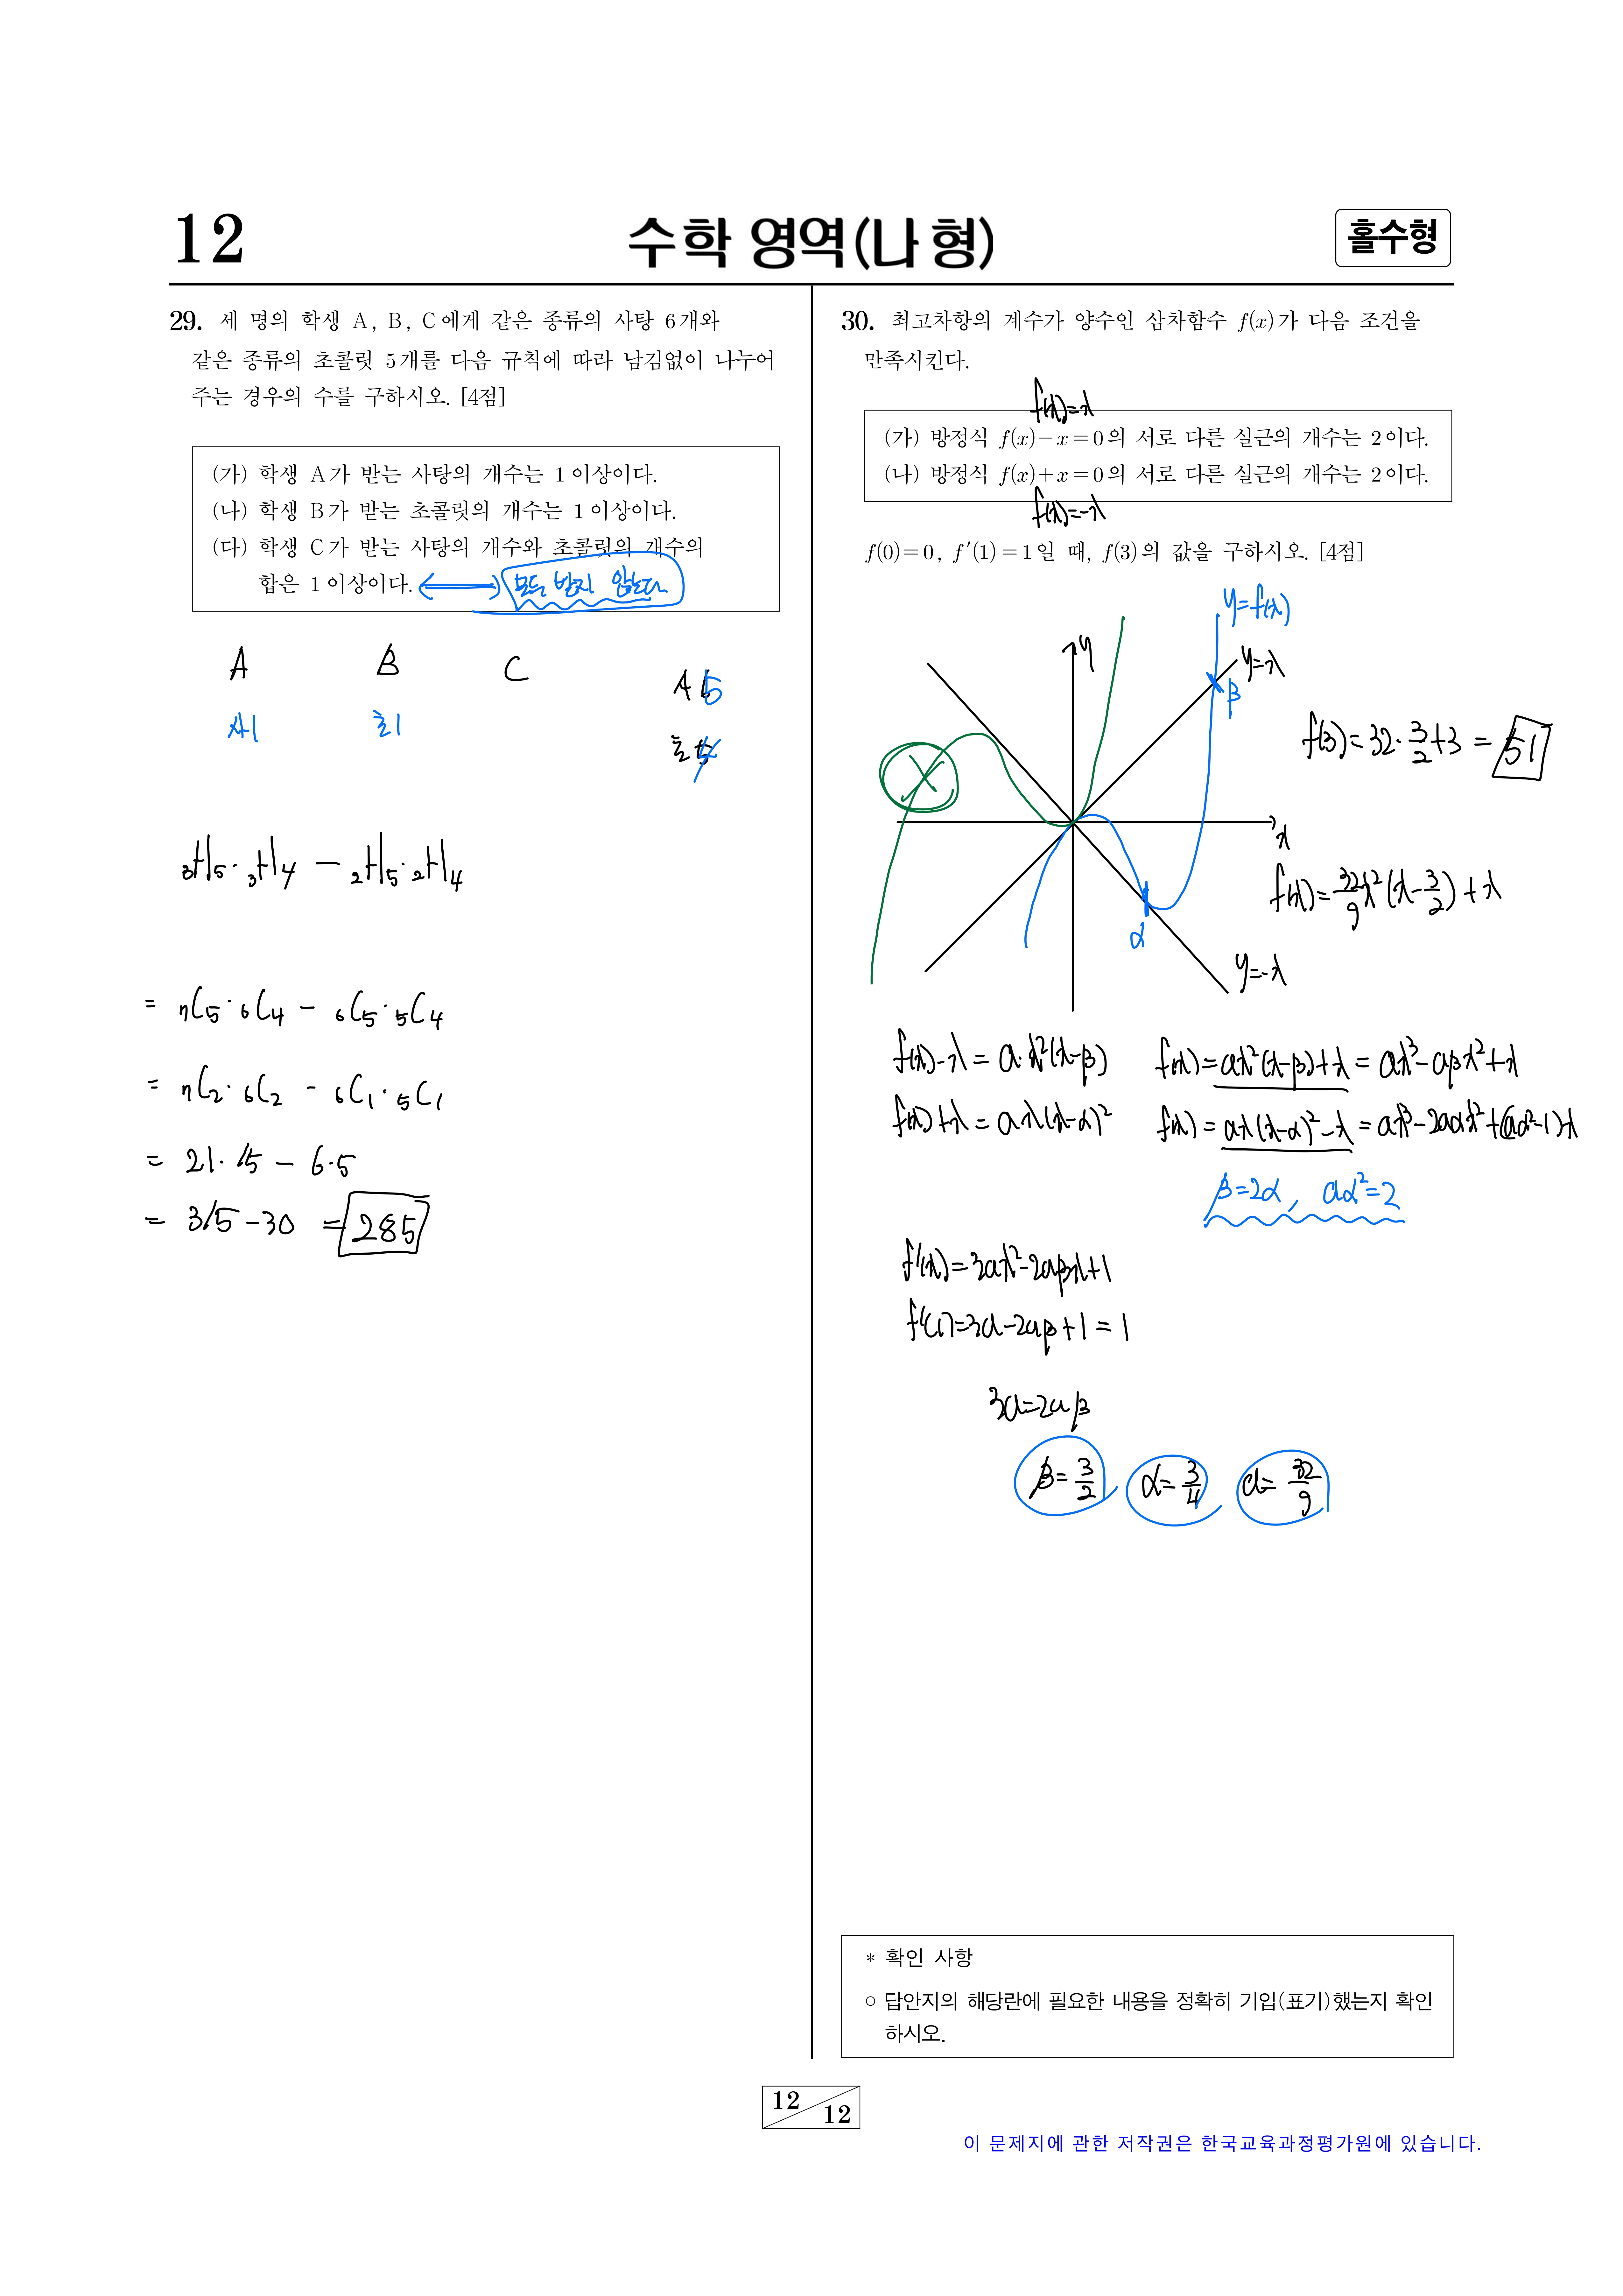 12
수학 영역(나형)
홀수형
29. 세 명의 학생 A, B, C에게 같은 종류의 사탕 6개와
같은 종류의 초콜릿 5개를 다음 규칙에 따라 남김없이 나누어
주는 경우의 수를 구하시오. [4점]
(가) 학생 A가 받는 사탕의 개수는 1이상이다.
(나) 학생 B가 받는 초콜릿의 개수는 1이상이다.
(다) 학생 C가 받는 사탕의 개수와 초콜릿의 개수의
합은 1이상이다. ⟺ 모두 받지 않는다
A B C
사1 초1
사 5
초 4
₃H₅·₃H₄ - ₂H₅·₂H₄
= ₇C₅·₆C₄ - ₆C₅·₅C₄
= ₇C₂·₆C₂ - ₆C₁·₅C₁
= 21·15 - 6·5
= 315 - 30 = 285
30. 최고차항의 계수가 양수인 삼차함수 f(x)가 다음 조건을
만족시킨다.
f(x)=x
(가) 방정식 f(x)-x=0의 서로 다른 실근의 개수는 2이다.
(나) 방정식 f(x)+x=0의 서로 다른 실근의 개수는 2이다.
f(x)=-x
f(0)=0, f′(1)=1일 때, f(3)의 값을 구하시오. [4점]
y=f(x)
y
y=x
β
f(3)=32·3/2+3=51
x
f(x)=32/9x²(x-3/2)+x
α
y=-x
f(x)-x=a·x²(x-β) f(x)=ax²(x-β)+x=ax³-aβx²+x
f(x)+x=ax(x-α)² f(x)=ax(x-α)²-x=ax³-2aαx²+(aα²-1)x
β=2α, aα²=2
f′(x)=3ax²-2aβx+1
f′(1)=3a-2aβ+1=1
3a=2aβ
β=3/2, α=3/4, a=32/9
* 확인 사항
○ 답안지의 해당란에 필요한 내용을 정확히 기입(표기)했는지 확인
하시오.
12
12
이 문제지에 관한 저작권은 한국교육과정평가원에 있습니다.